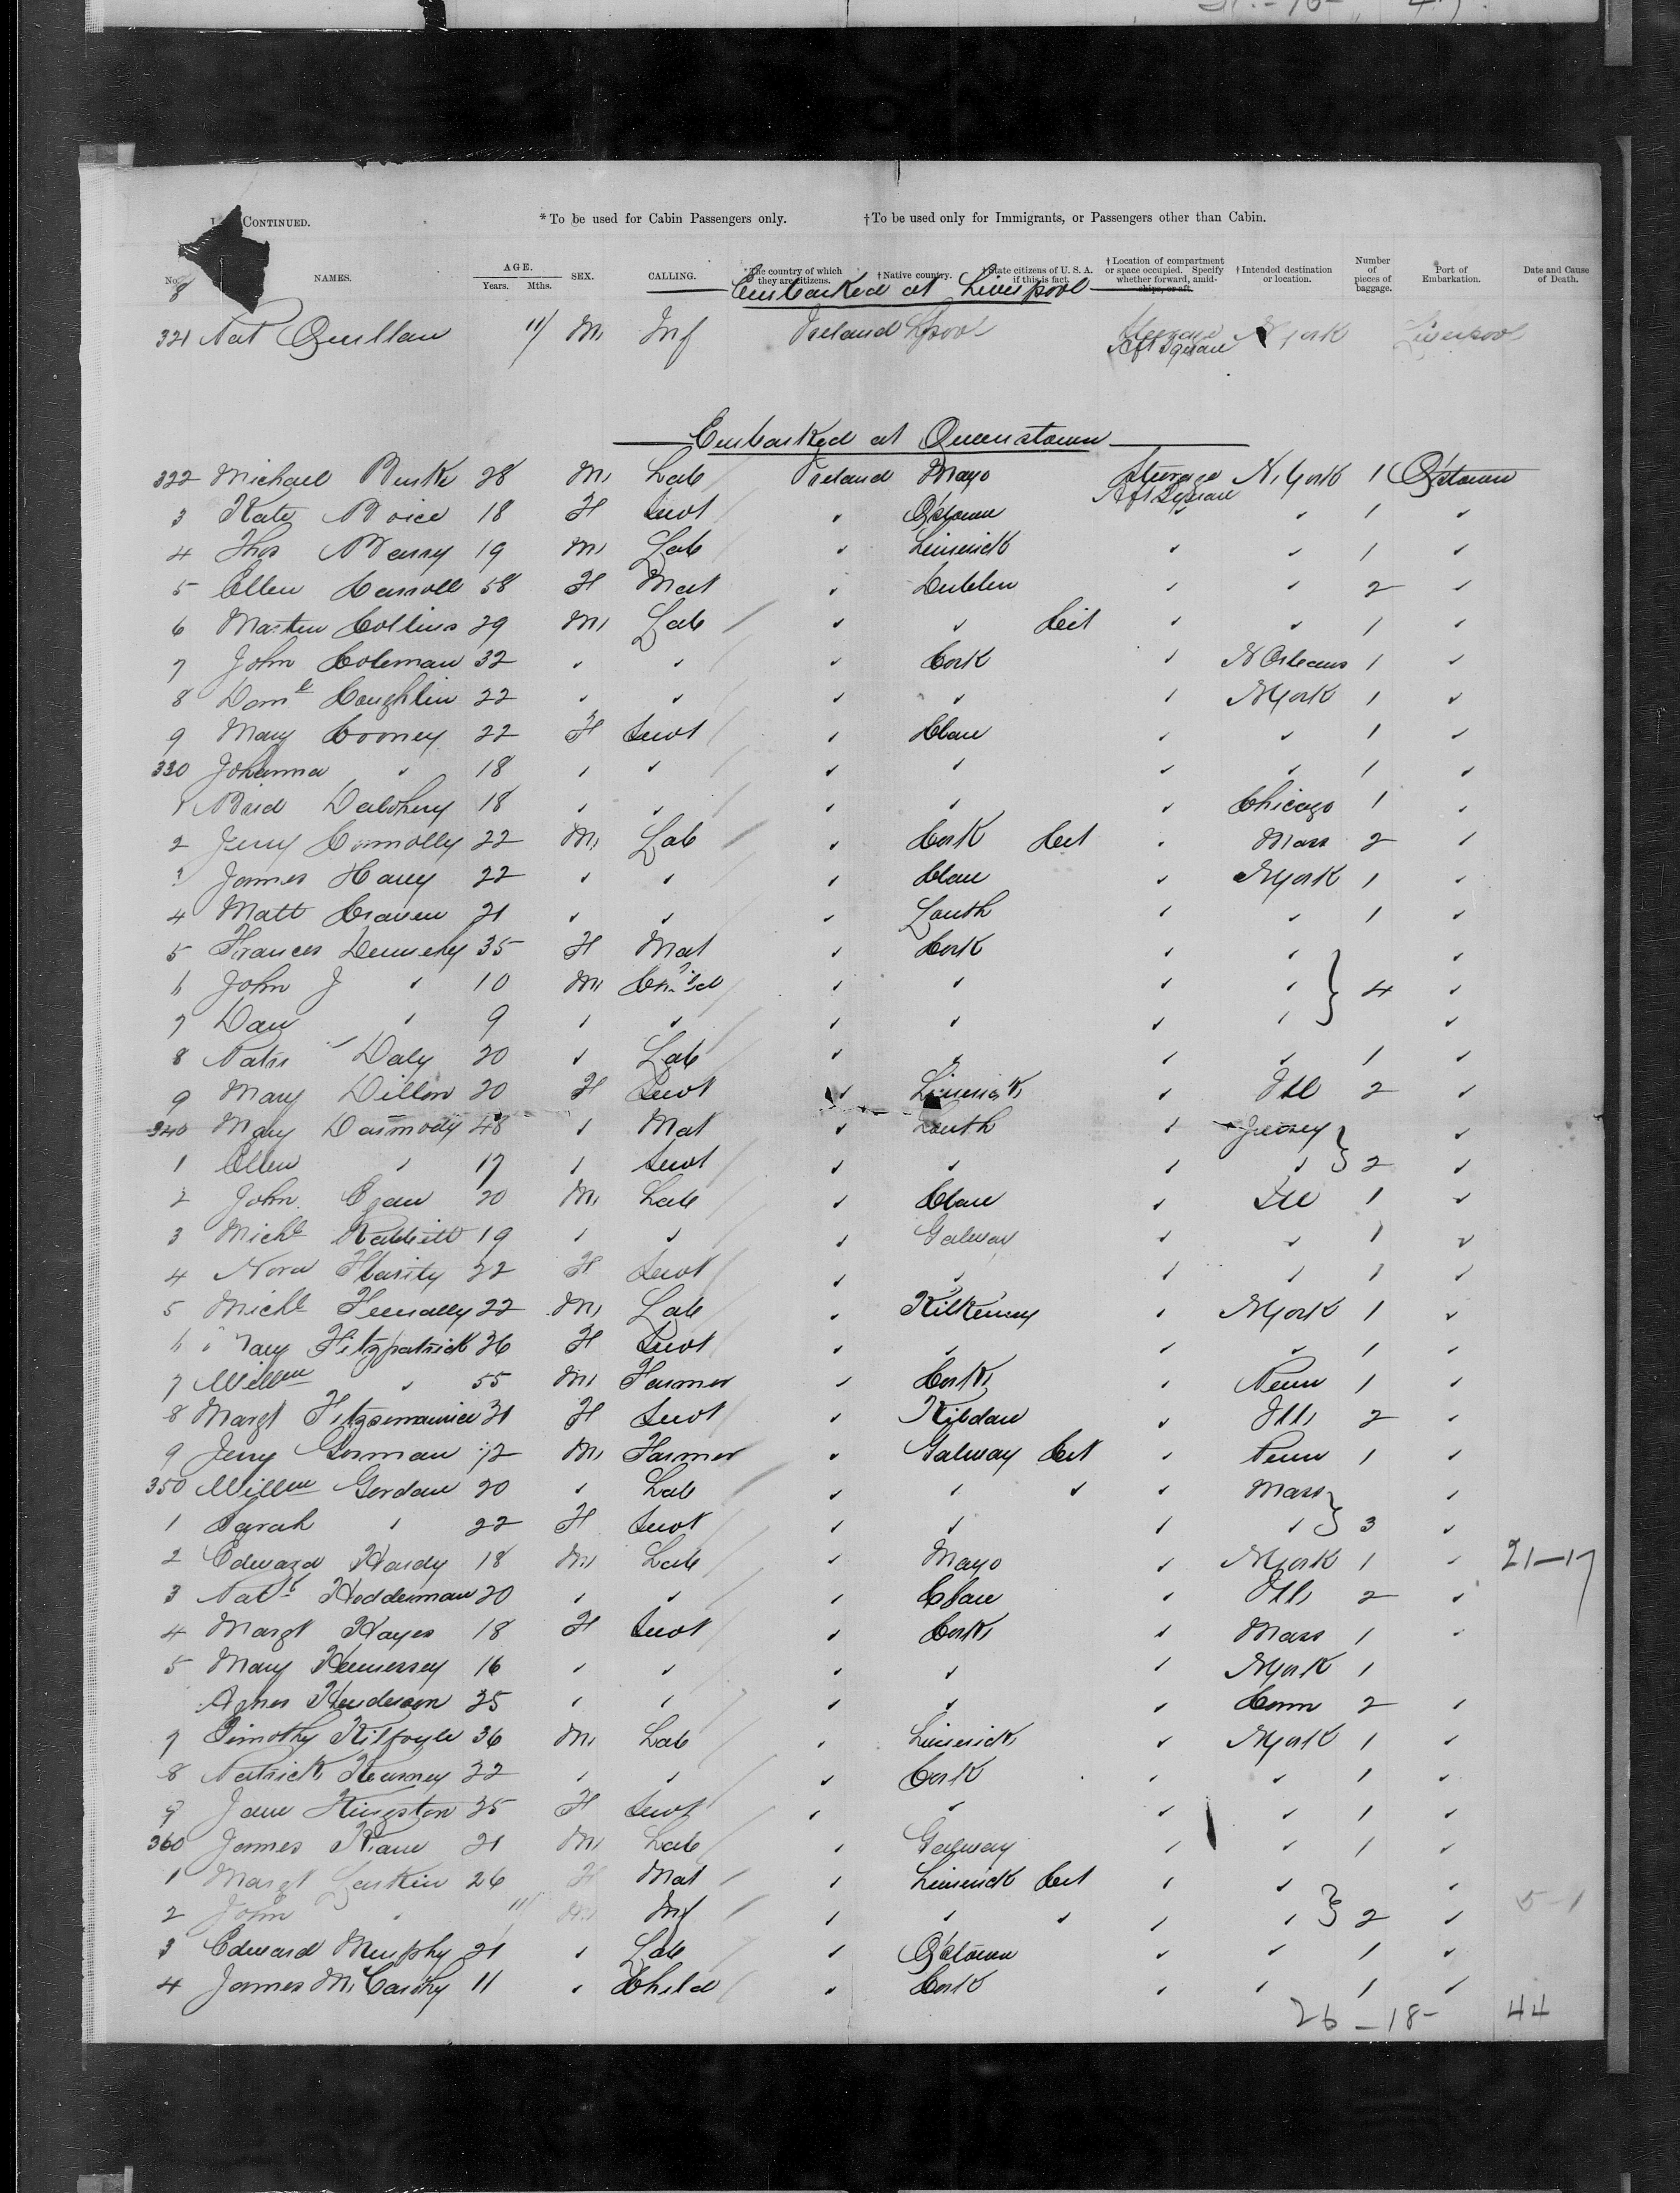 LIST CONTINUED. *To be used for Cabin Passengers only. †To be used only for Immigrants, or Passengers other than Cabin.
No. NAMES. AGE. Years. Mths. SEX. CALLING. *The country of which they are citizens. †Native country. †State citizens of U. S. A. if this is fact. †Location of compartment or space occupied. Specify whether forward, amidships, or aft. †Intended destination or location. Number of pieces of baggage. Port of Embarkation. Date and Cause of Death.
8 Embarked at Liverpool
321 Pat Quillan 11/ M Inf Ireland Lpool Steerage Aft Square N York Liverpool
Embarked at Queenstown
322 Michael Burke 28 M Lab Ireland Mayo Steerage Aft Square N. York 1 Q'stown
3 Kate Boice 18 F Svot ✓ Q'stown ✓ ✓ 1 ✓
4 Thos Barry 19 M Lab ✓ Limerick ✓ ✓ 1 ✓
5 Ellen Carroll 58 F Mat ✓ Dublin ✓ ✓ 2 ✓
6 Martin Collins 29 M Lab ✓ ✓ Cit ✓ ✓ 1 ✓
7 John Coleman 32 ✓ ✓ ✓ Cork ✓ N Orleans 1 ✓
8 Danl Coughlin 22 ✓ ✓ ✓ ✓ ✓ NYork 1 ✓
9 Mary Cooney 22 F Svot ✓ Clare ✓ ✓ 1 ✓
330 Johanna ✓ 18 ✓ ✓ ✓ ✓ ✓ ✓ 1 ✓
1 Brid 18 ✓ ✓ ✓ ✓ ✓ Chicago 1 ✓
2 Jerry Connolly 22 M Lab ✓ Cork Cit ✓ Mass 2 ✓
3 James Harry 22 ✓ ✓ ✓ Clare ✓ NYork 1 ✓
4 Matt Craven 21 ✓ ✓ ✓ Louth ✓ ✓ 1 ✓
5 Frances Dennehy 35 F Mat ✓ Cork ✓ ✓ ✓
6 John J ✓ 10 M Child ✓ ✓ ✓ ✓ } 4 ✓
7 Dan ✓ 9 ✓ ✓ ✓ ✓ ✓ ✓ ✓
8 Patk Daly 20 ✓ Lab ✓ ✓ ✓ ✓ 1 ✓
9 Mary Dillon 20 F Svot ✓ Limerick ✓ Ill 2 ✓
340 Mary Darmody 48 ✓ Mat ✓ Louth ✓ Jersey ✓
1 Ellen ✓ 17 ✓ Svot ✓ ✓ ✓ ✓ } 2 ✓
2 John Egan 20 M Lab ✓ Clare ✓ Ill 1 ✓
3 Michl 19 ✓ ✓ ✓ Galway ✓ ✓ 1 ✓
4 Nora 22 F Svot ✓ ✓ ✓ ✓ 1 ✓
5 Michl Fennally 22 M Lab ✓ Kilkenny ✓ NYork 1 ✓
6 Mary Fitzpatrick 26 F Svot ✓ ✓ ✓ ✓ 1 ✓
7 Willm ✓ 55 M Farmer ✓ Cork ✓ Penn 1 ✓
8 Margt Fitzsmaurice 21 F Svot ✓ Kildare ✓ Ills 2 ✓
9 Jerry Gorman 72 M Farmer ✓ Galway Cit ✓ Penn 1 ✓
350 Willm Gordan 20 ✓ Lab ✓ ✓ ✓ ✓ Mass ✓
1 Sarah ✓ 22 F Svot ✓ ✓ ✓ ✓ } 3 ✓
2 Edward Hardy 18 M Lab ✓ Mayo ✓ NYork 1 ✓ 21-17
3 Patk Hodderman 20 ✓ ✓ ✓ Clare ✓ Ills 2 ✓
4 Margt Hayes 18 F Svot ✓ Cork ✓ Mass 1 ✓
5 Mary Hennessey 16 ✓ ✓ ✓ ✓ ✓ NYork 1
Agnes Henderson 25 ✓ ✓ ✓ ✓ ✓ Conn 2 ✓
7 Timothy Kilfoyle 36 M Lab ✓ Limerick ✓ NYork 1 ✓
8 Patrick Kearney 22 ✓ ✓ ✓ Cork ✓ ✓ 1 ✓
9 Jane Kingston 25 F Svot ✓ ✓ ✓ ✓ 1 ✓
360 James Kane 21 M Lab ✓ Galway ✓ ✓ 1 ✓
1 Margt Larkin 26 F Mat ✓ Limerick Cit ✓ ✓ ✓
2 John ✓ 11/ M Inf ✓ ✓ ✓ ✓ ✓ } 2 ✓ 5-1
3 Edward Murphy 21 ✓ Lab ✓ Q'stown ✓ ✓ 1 ✓
4 James McCarthy 11 ✓ Child ✓ Cork ✓ ✓ 1 ✓
26-18- 44